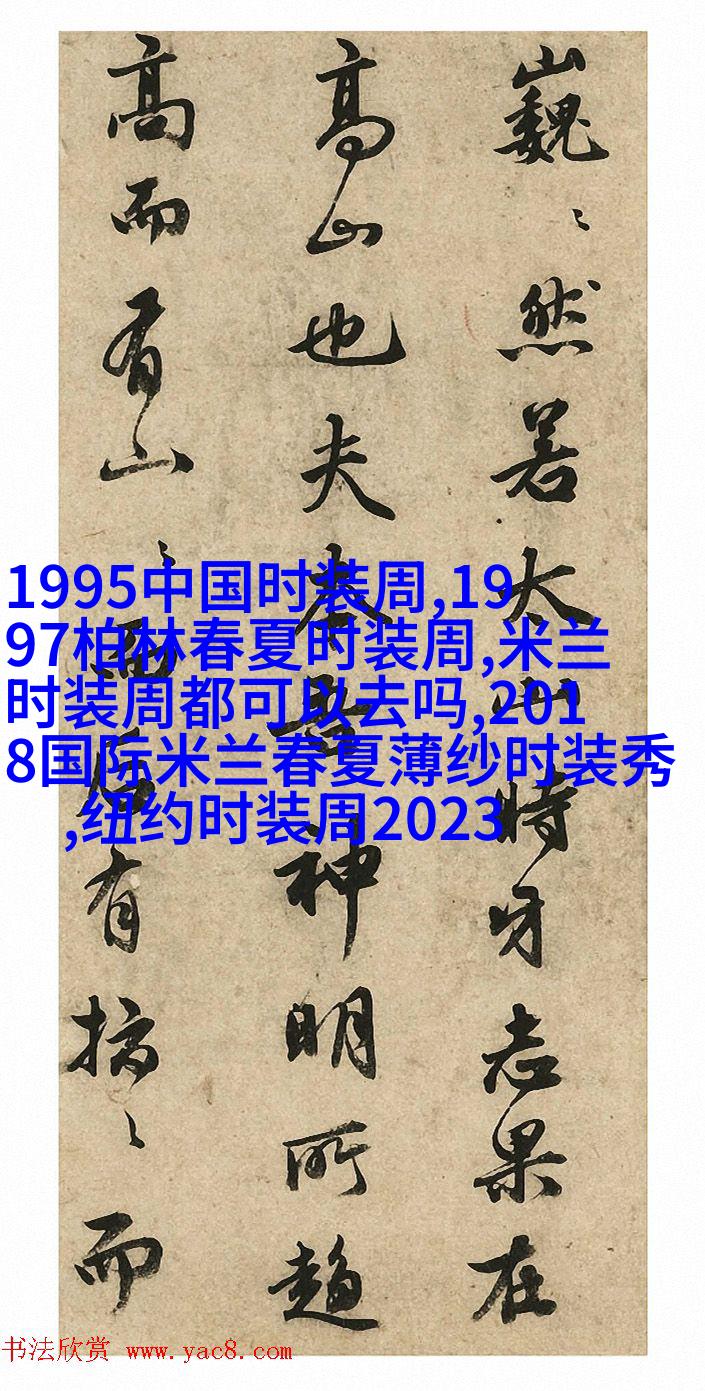 巍〻然若太山時牙志果在
高山也夫奉吾神明所趋
高而有山〻而后有搞〻而
1995中国时装周,19
97柏林春夏时装周,米兰
时装周都可以去吗,201
8国际米兰春夏薄纱时装秀
,纽约时装周2023
书法欣赏 www.yac8.com